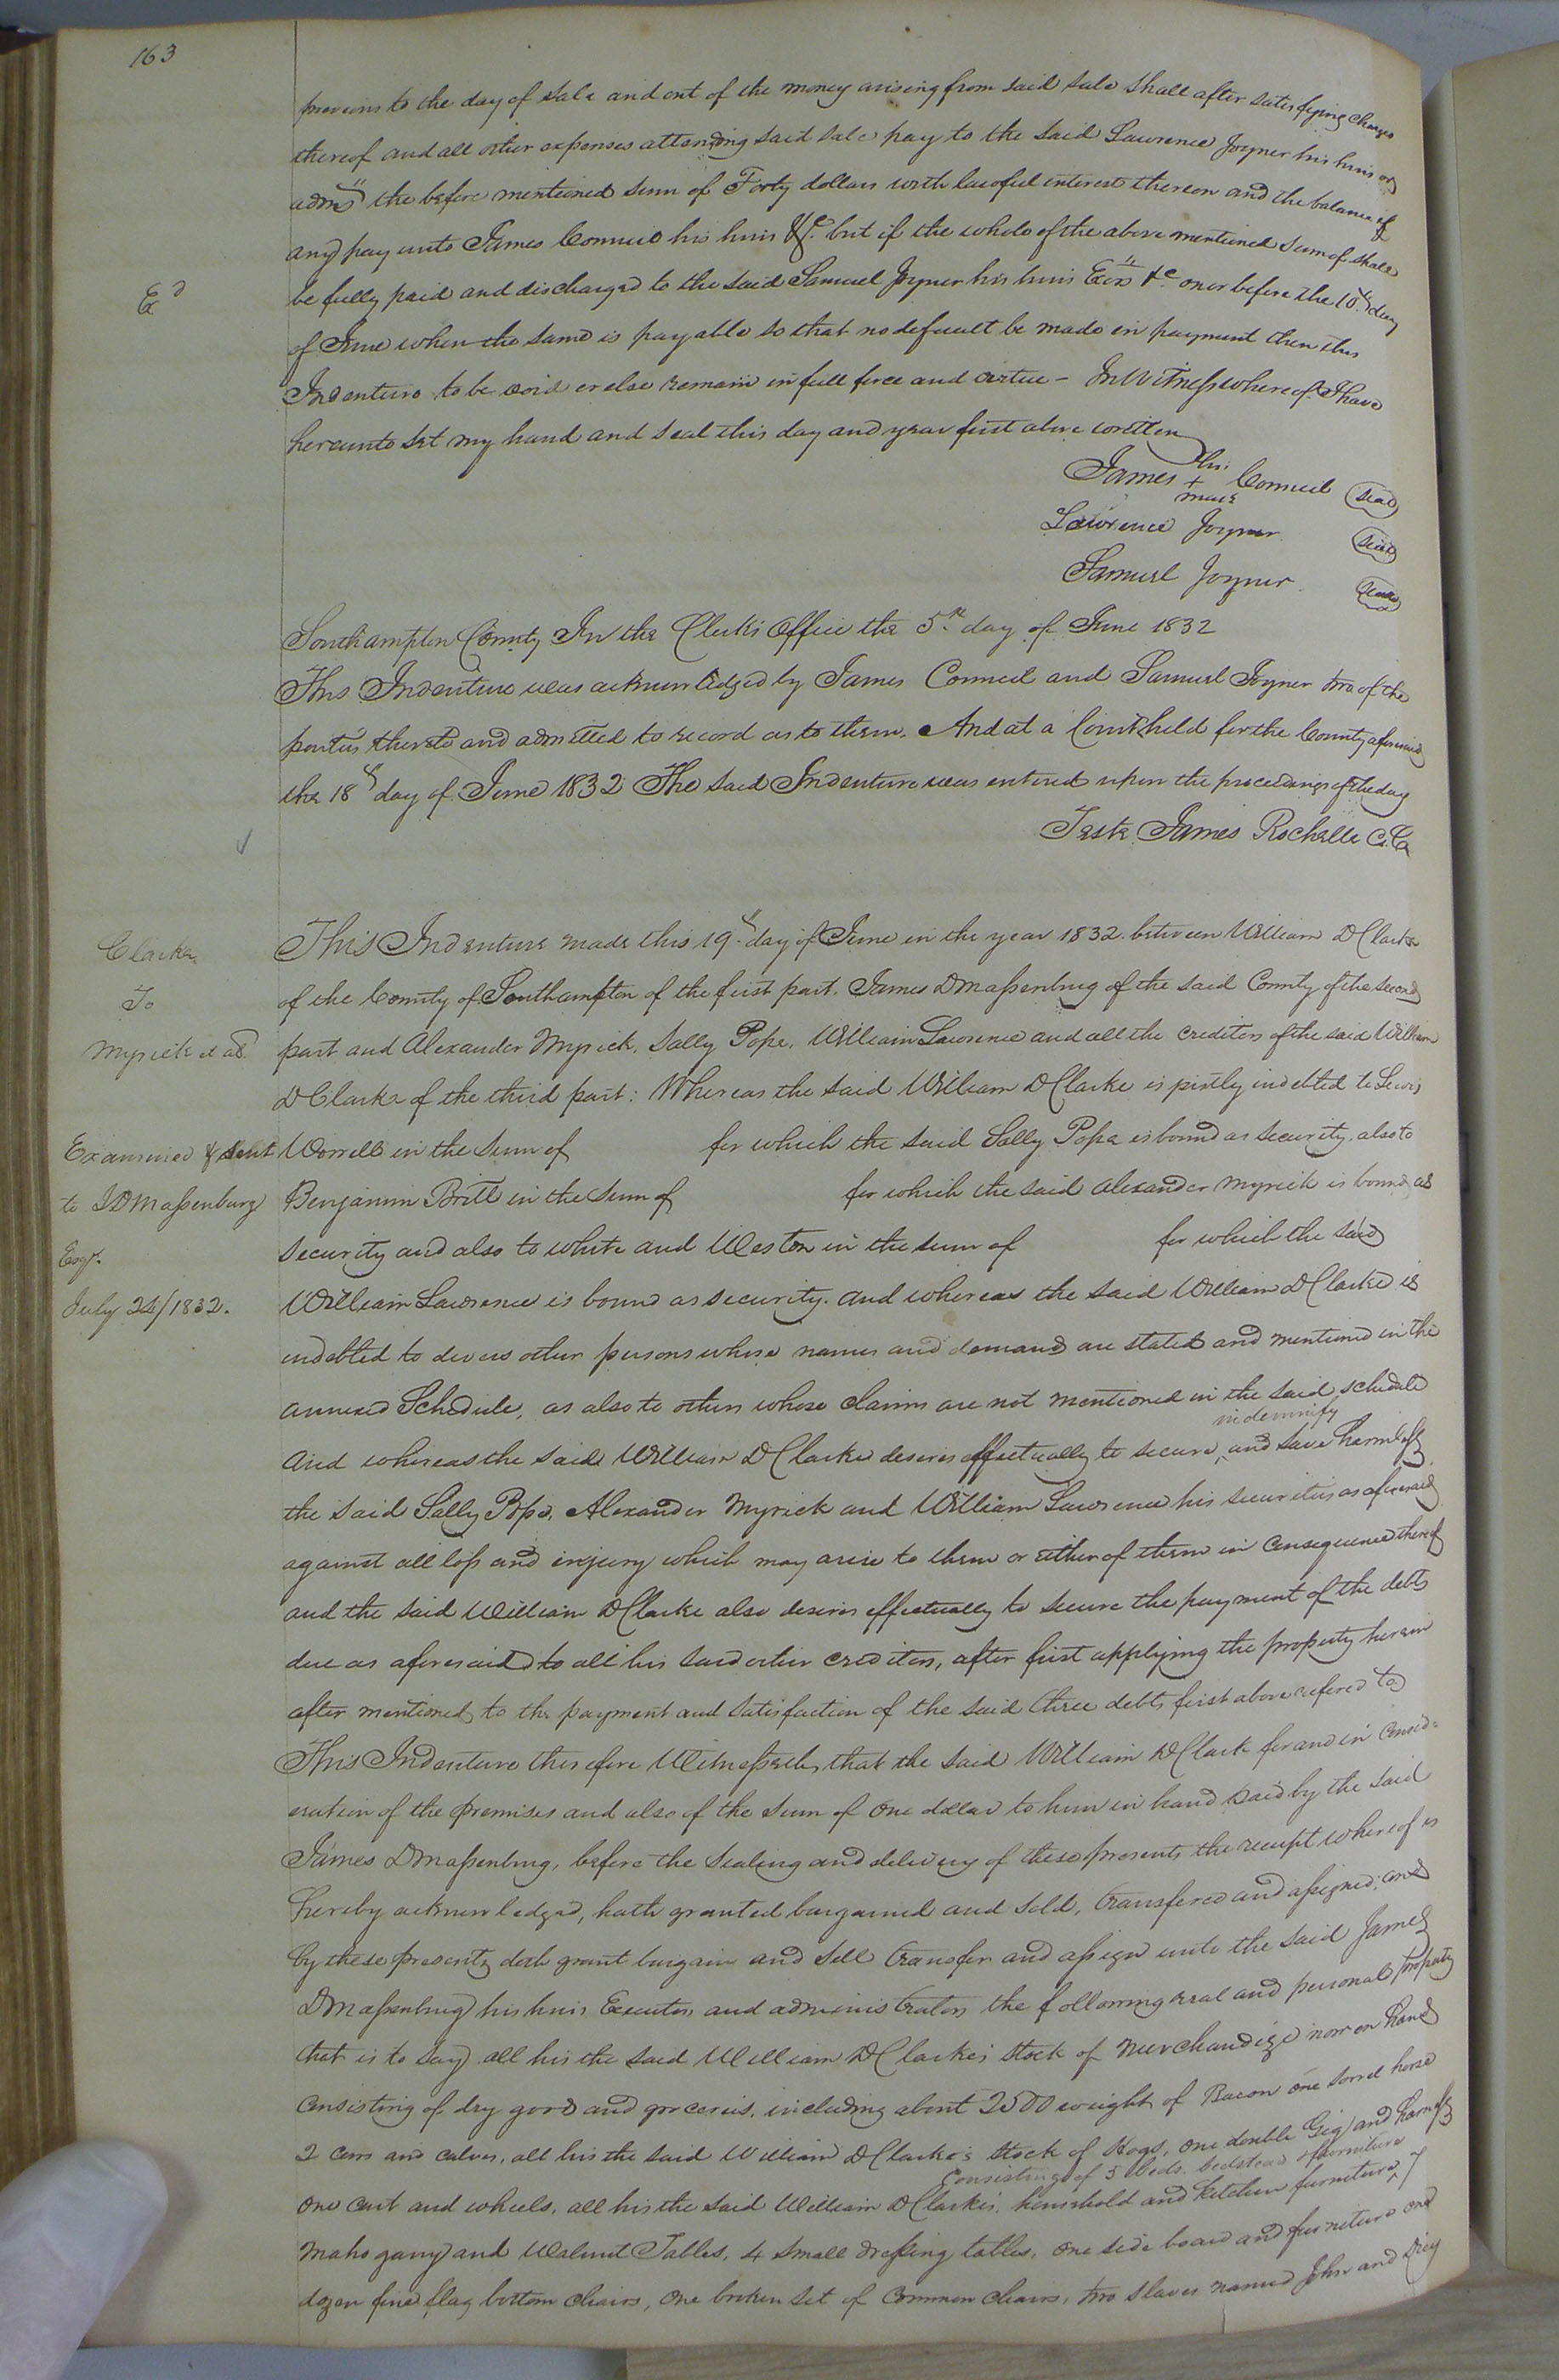 163
previous to the day of sale and out of the money arising from said sale shall after satisfying charges
thereof and all other expenses attending said sale pay to the said Lawrence Joyner his heirs or
admrs the before mentioned sum of Forty dollars with lawful interest thereon and the balance if
any pay unto James Council his heirs &c. but if the whole of the above mentioned sum of shall
be fully paid and discharged to the said Samuel Joyner his heirs Exrs &c on or before the 10th day
Ed
of June when the same is payable so that no default be made in payment then this
Indenture to be void or else remain in full force and virtue - In Witness whereof I have
hereunto set my hand and seal this day and year first above written
James his + mark Council seal
Lawrence Joyner seal
Samuel Joyner seal
Southampton County In the Clerk's Office the 5th day of June 1832
This Indenture was acknowledged by James Council and Samuel Joyner two of the
parties thereto and admitted to record as to them. And at a Court held for the County aforesaid
the 18th day of June 1832 The said Indenture was entered upon the proceedings of the day
Teste James Rochelle C.C.
Clarke
To
Myrick et als
This Indenture made this 19th day of June in the year 1832 between William D Clarke
of the County of Southampton of the first part, James D Massenburg of the said County of the second
part and Alexander Myrick, Sally Pope, William Lawrence and all the creditors of the said William
D Clarke of the third part: Whereas the said William D Clarke is justly indebted to Lewis
Examined & sent
to J D Massenburg
Esqr.
July 24/1832.
Worrell in the sum of for which the said Sally Pope is bound as security, also to
Benjamin Britt in the sum of for which the said Alexander Myrick is bound as
security and also to White and Weston in the sum of for which the said
William Lawrence is bound as security. and whereas the said William D Clarke is
indebted to divers other persons whose names and demand are stated and mentioned in the
annexed Schedule, as also to others whose claims are not mentioned in the said schedule
And whereas the said William D Clarke desires effectually to secure, indemnify and save harmless
the said Sally Pope, Alexander Myrick and William Lawrence his securities as aforesaid
against all loss and injury which may arise to them or either of them in consequence thereof
and the said William D Clarke also desires effectually to secure the payment of the debts
due as aforesaid to all his said other creditors, after first applying the property herein
after mentioned to the payment and satisfaction of the said three debts first above refered to
This Indenture therefore Witnesseth, that the said William D Clark for and in consid=
eration of the premises and also of the sum of one dollar to him in hand paid by the said
James D Massenburg, before the sealing and delivery of these presents the receipt whereof is
hereby acknowledged, hath granted bargained and sold, transfered and assigned, and
by these presents doth grant bargain and sell transfer and assign unto the said James
D Massenburg his heirs Executors and administrators the following real and personal property
that is to say all his the said William D Clarke's stock of Merchandize now on hand
consisting of dry good and groceries, including about 2500 weight of Bacon one sorrel horse
2 cows and calves, all his the said William D Clarke's stock of Hogs, one double Gig and harness
one cart and wheels, all his the said William D Clarke's household and kitchen furniture, Consisting of 5 beds bedstead & furniture 7
mahogany and Walnut Tables, 4 small dressing tables, one side board and furniture one
dozen fine flag bottom chairs, one broken set of common chairs, two slaves named John and